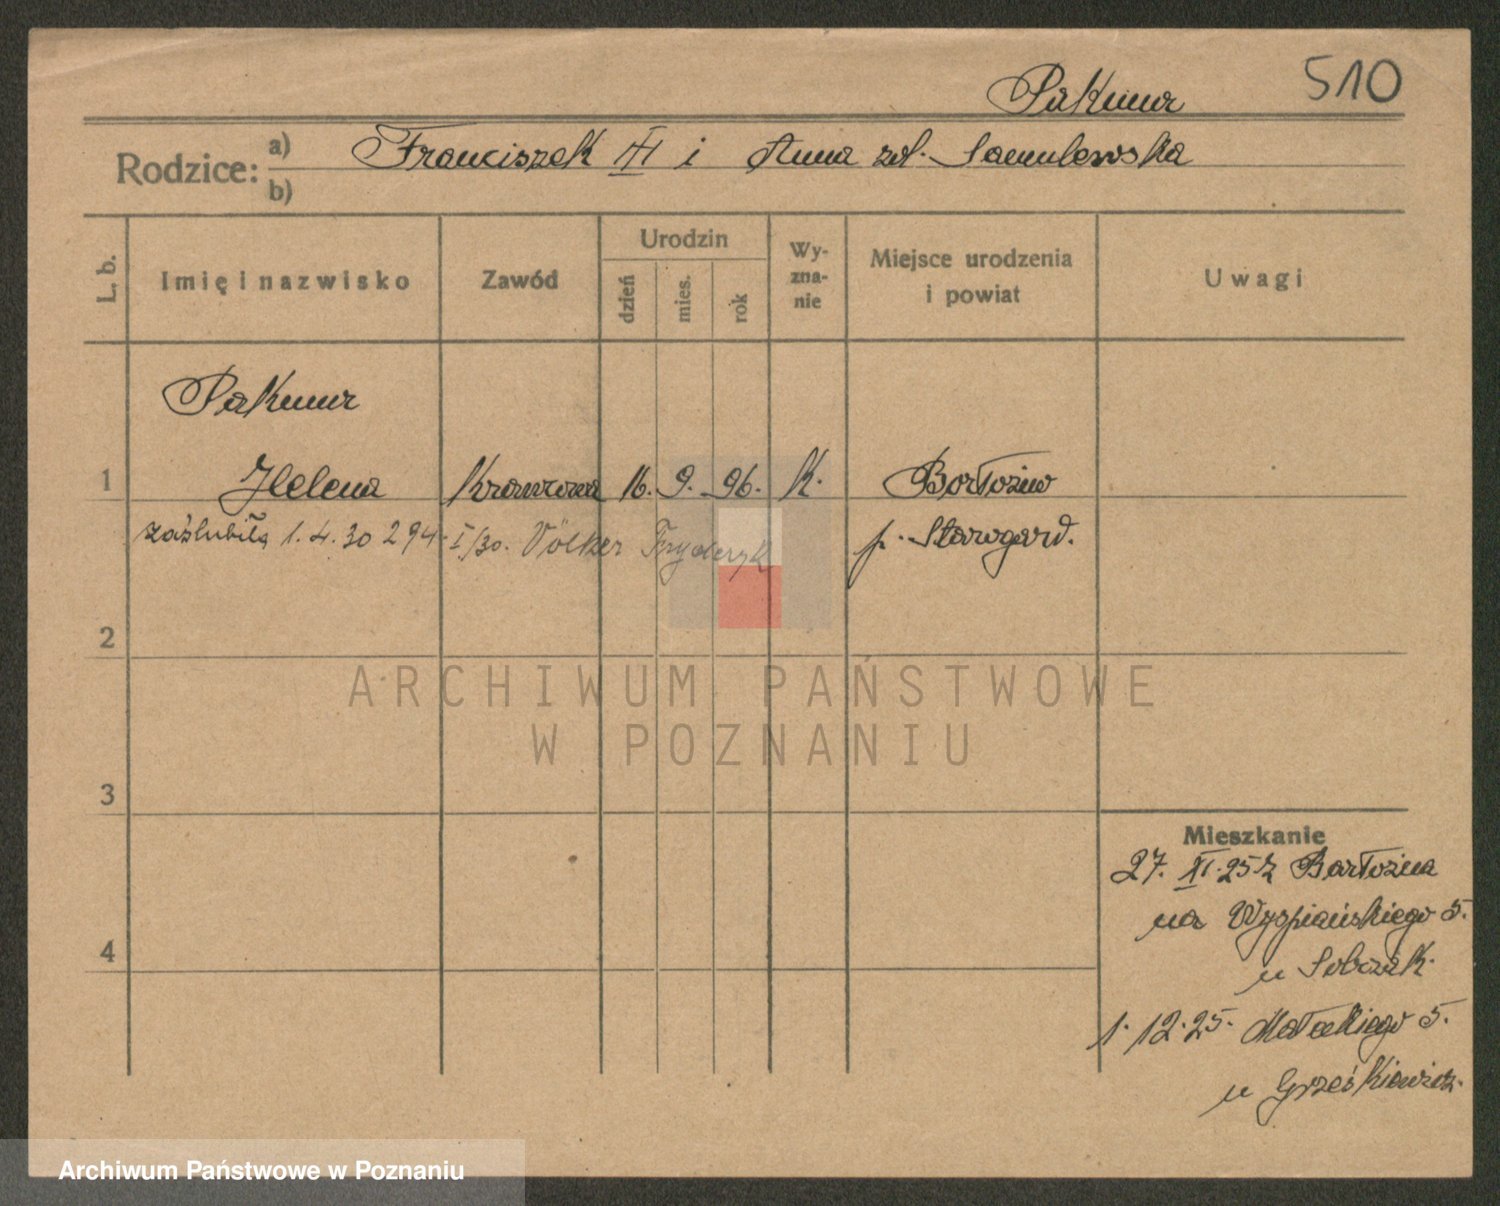 Pakmur
510
Rodzice: a) Franciszek III i Anna zd. Samulewska
b)
L. b. Imię i nazwisko Zawód Urodzin dzień mies. rok Wyznanie Miejsce urodzenia i powiat Uwagi
Pakmur
1 Helena Krawcowa 16. 9. 96. K. Bartożno
zaślubiła 1.4.30 294. I/30. Völker Fryderyk p. Starogard.
2
3
Mieszkanie
27. XI. 25 z Bartożna
na Wyspiańskiego 5.
4
u Sobczak.
1. 12. 25. Małeckiego 5.
u Grześkiewicz.
ARCHIWUM PAŃSTWOWE
W POZNANIU
Archiwum Państwowe w Poznaniu